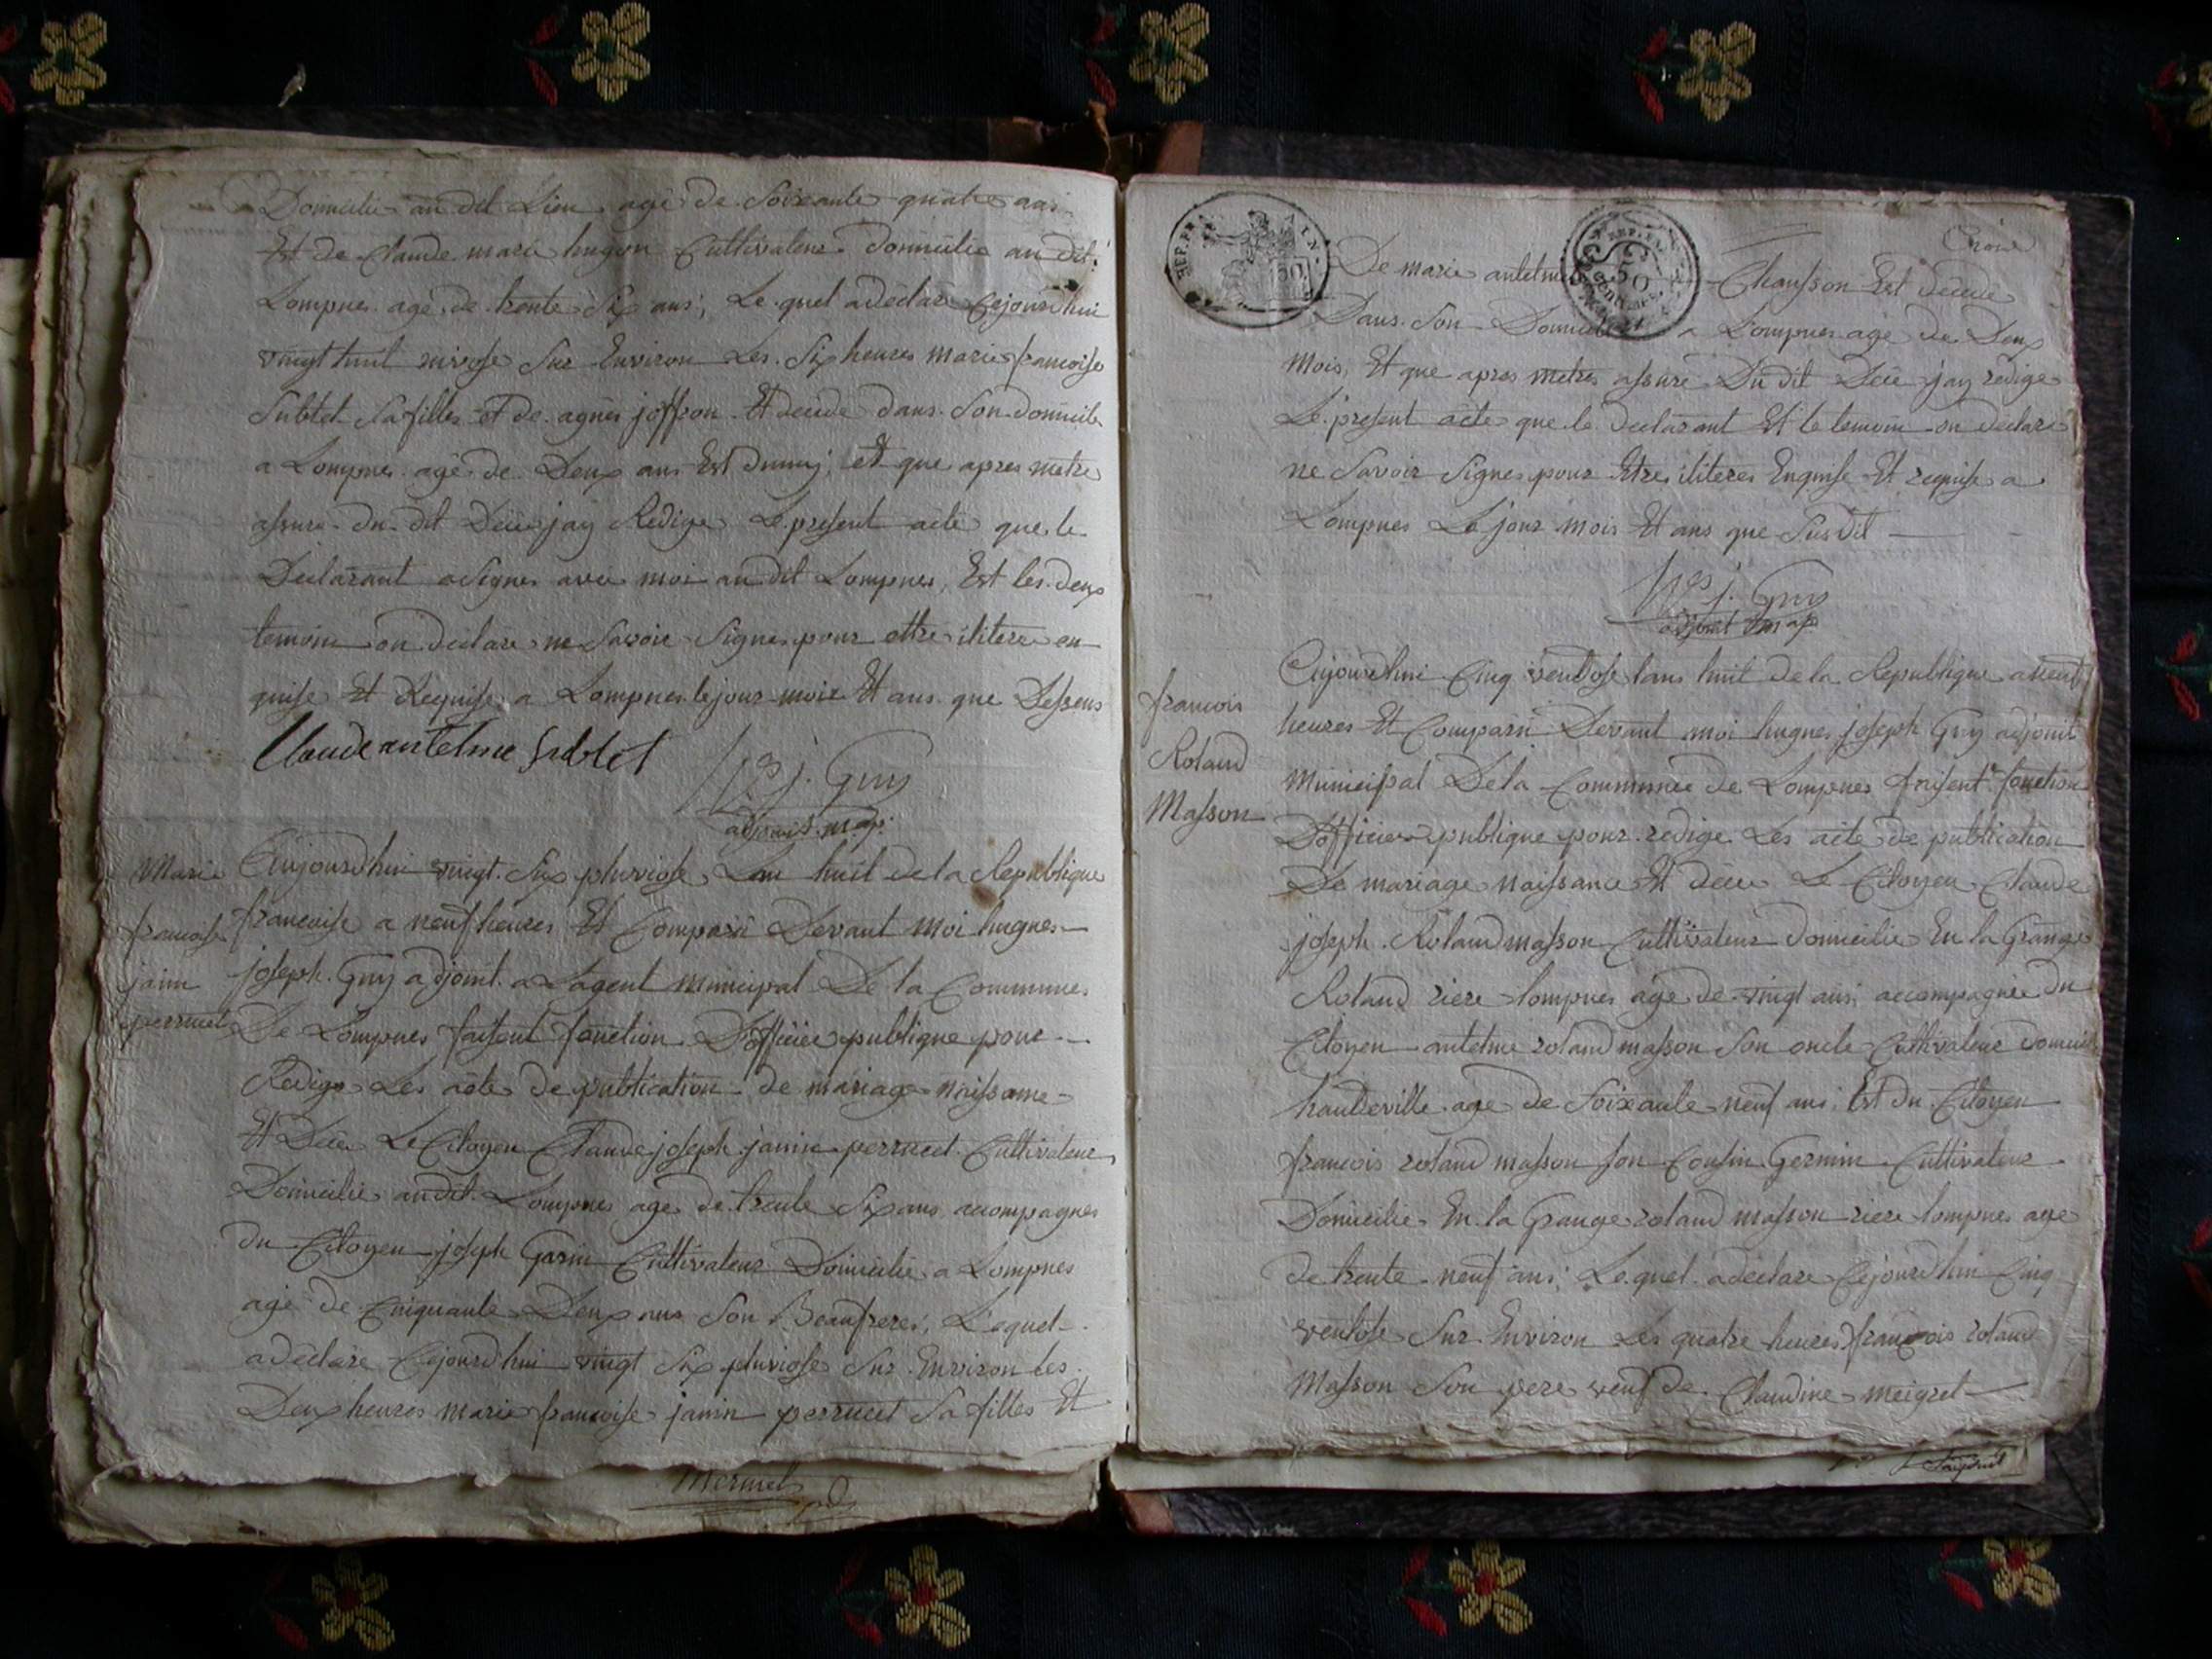 Domicilie au dit Lieu age de Soixante quatre ans
Est de Claude marie hugon Cultivateur domicilie au dit
Lompnes age de trente Six ans, Le quel a declare Cejourdhui
vingt huit nivose Sur Environ Les Six heures marie francoise
Subtet Sa filles et de agnes joffron Et decede dans Son domicile
a Lompnes age de Deux ans Est Demy, et que apres metre
assure du dit Décè jay Redige Le present acte que le
Declarant a Signes avec moi au dit Lompnes, Est les deux
temoins on declare ne Savoir Signes pour ettre iliteres en
quise Et Requise a Lompnes le jour mois Et ans que Dessus
Claude antelme Subtet
hgs j. Guy
adjoint. m.ap.
Marie
francoise
janin
perrucet
Aujourdhui vingt Six pluviose Lan huit de la Republique
francoise a neuf heures Est Comparu Devant Moi hugues
joseph Guy adjoint a Lagent municipal De la Commune
De Lompnes faisent fonction D'officier publique pour
Redige Les acte de publication de mariage naissance
Et Décè Le Citoyen Claude joseph janin perrucet Cultivateur
Domicilie au dit Lompnes age de trente Six ans accompagnes
du Citoyen joseph Garin Cultivateur Domicilie a Lompnes
age de Cinquante Deux ans Son Beaufreres, Lequel
a declare Cejourdhui vingt Six pluviose Sur Environ les
Deux heures marie francoise janin perrucet Sa filles Et
mermet
REP. FRA.
AIN.
50
De marie antelme Chanfson Est decede
Dans Son Domicile a Lompnes age de Deux
mois, Et que apres metres assure Du dit Décè jay redige
Le present acte que le declarant Et le temoin on declare
ne Savoir Signes pour Etre iliteres Enquise Et requise a
Lompnes Le jour mois Et ans que Susdit
hgs j. Guy
adjoint m ap
francois
Roland
Masson
Cejourdhui Cinq ventose lans huit de la Republique a neuf
heures Et Comparu Devant moi hugues joseph Guy adjoint
municipal De la Commune de Lompnes faisent fonction
D'officier publique pour redige Les acte de publication
De mariage naissance Et décè Le Citoyen Claude
joseph Roland masson Cultivateur domicilie En la Grange
Roland riere lompnes age de vingt ans, accompagnée du
Citoyen antelme roland masson Son oncle Cultivateur domicile
hauteville age de Soixante neuf ans, Est du Citoyen
francois roland masson Son Cousin Germin Cultivateur
Domicilie En la Grange roland masson riere lompnes age
de trente neuf ans, Lequel a declare Cejourdhui Cinq
ventose Sur Environ Les quatre heures francois roland
Masson Son pere veuf de Claudine meigret